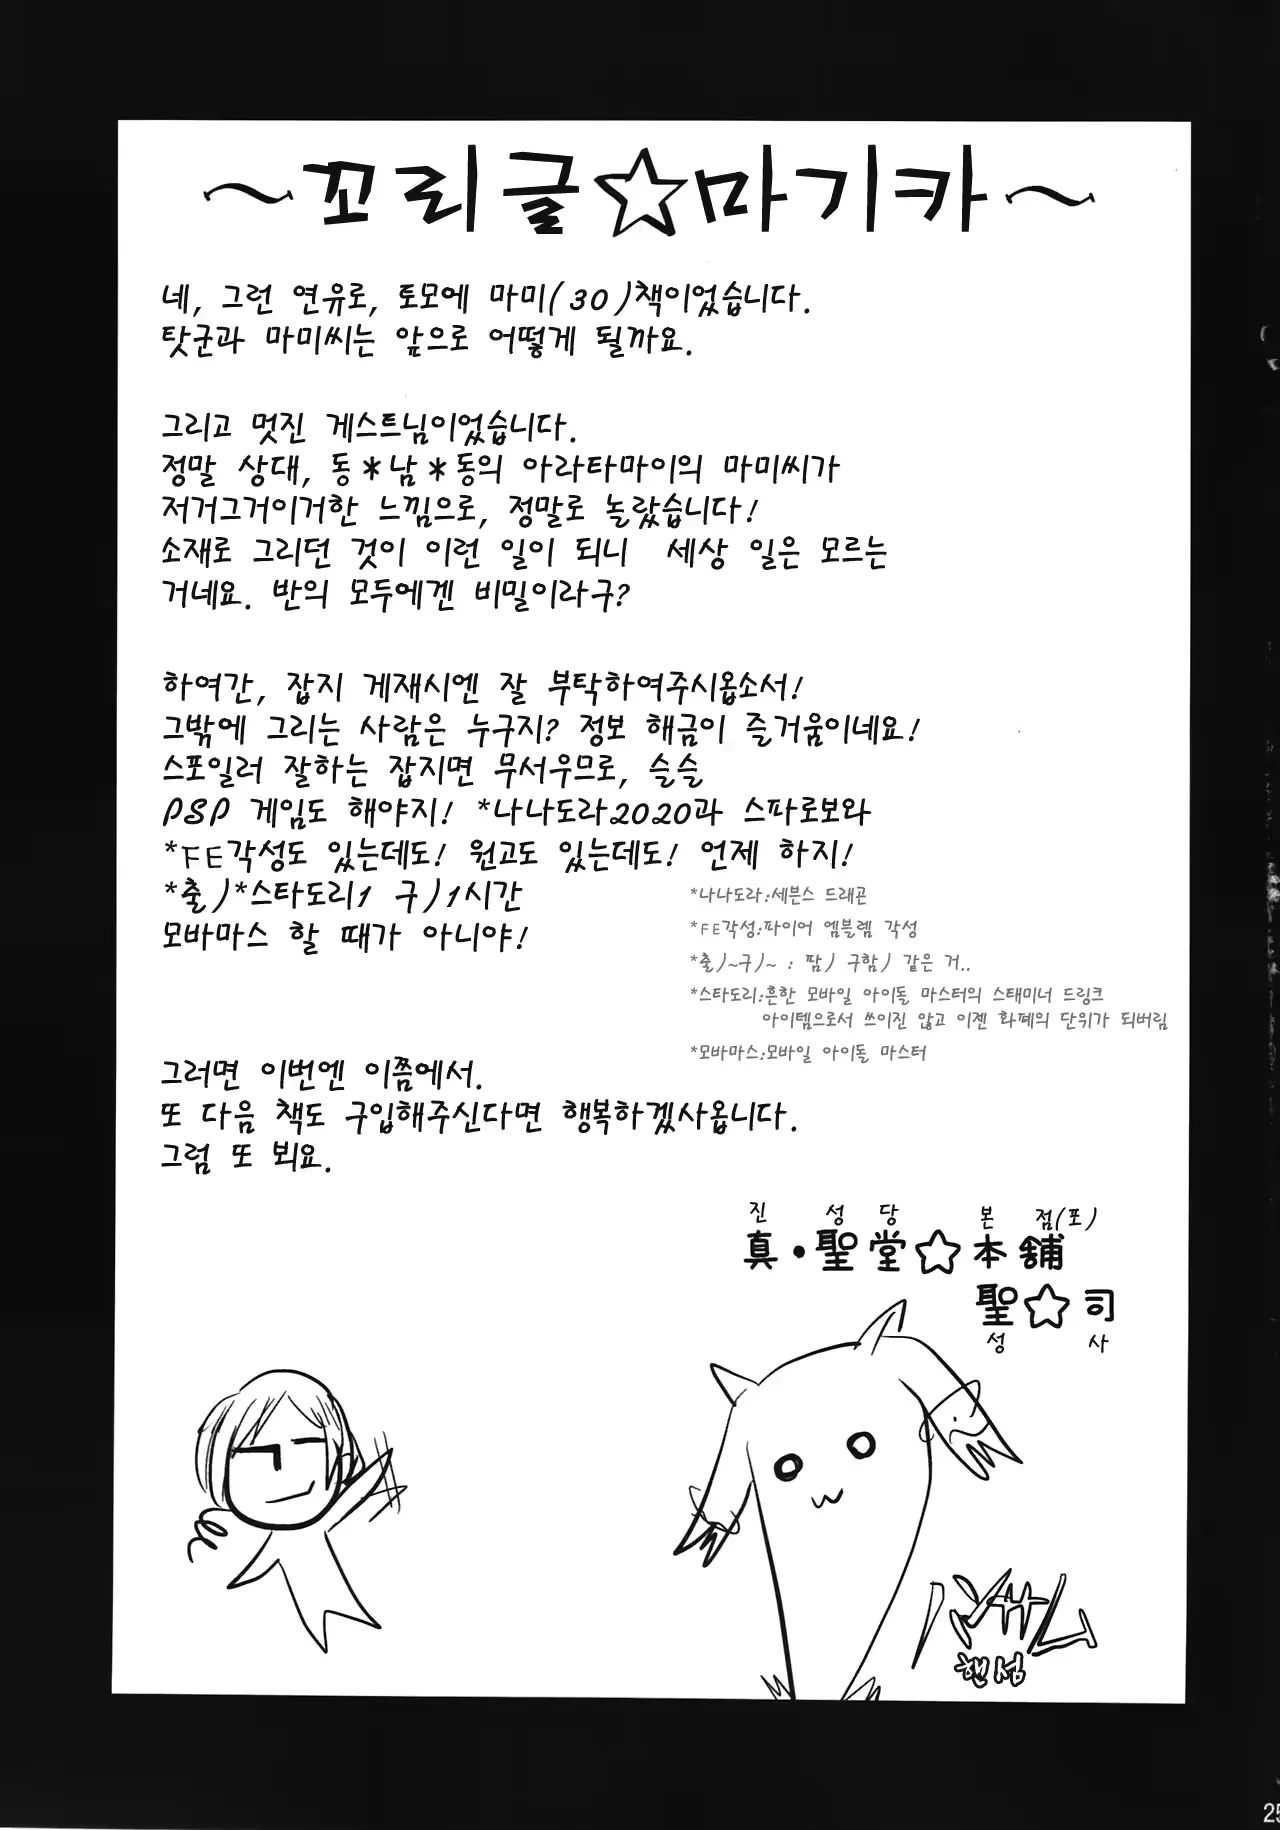 ~꼬리글☆마기카~
네, 그런 연유로, 토모에 마미(30)책이었습니다.
탓군과 마미씨는 앞으로 어떻게 될까요.
그리고 멋진 게스트님이었습니다.
정말 상대, 동*남*동의 아라타마이의 마미씨가
저거그거이거한 느낌으로, 정말로 놀랐습니다!
소재로 그리던 것이 이런 일이 되니 세상 일은 모르는
거네요. 반의 모두에겐 비밀이라구?
하여간, 잡지 게재시엔 잘 부탁하여주시옵소서!
그밖에 그리는 사람은 누구지? 정보 해금이 즐거움이네요!
스포일러 잘하는 잡지면 무서우므로, 슬슬
PSP 게임도 해야지! *나나도라2020과 스파로보와
*FE각성도 있는데도! 원고도 있는데도! 언제 하지!
*출)*스타도리1 구)1시간
모바마스 할 때가 아니야!
*나나도라:세븐스 드래곤
*FE각성:파이어 엠블렘 각성
*출)~구)~ : 팜) 구함) 같은 거..
*스타도리:흔한 모바일 아이돌 마스터의 스태미너 드링크
아이템으로서 쓰이진 않고 이젠 화폐의 단위가 되버림
*모바마스:모바일 아이돌 마스터
그러면 이번엔 이쯤에서.
또 다음 책도 구입해주신다면 행복하겠사옵니다.
그럼 또 뵈요.
진 성 당 본 점(포)
真・聖堂☆本舗
聖☆司
성 사
ハンサム
핸섬
25